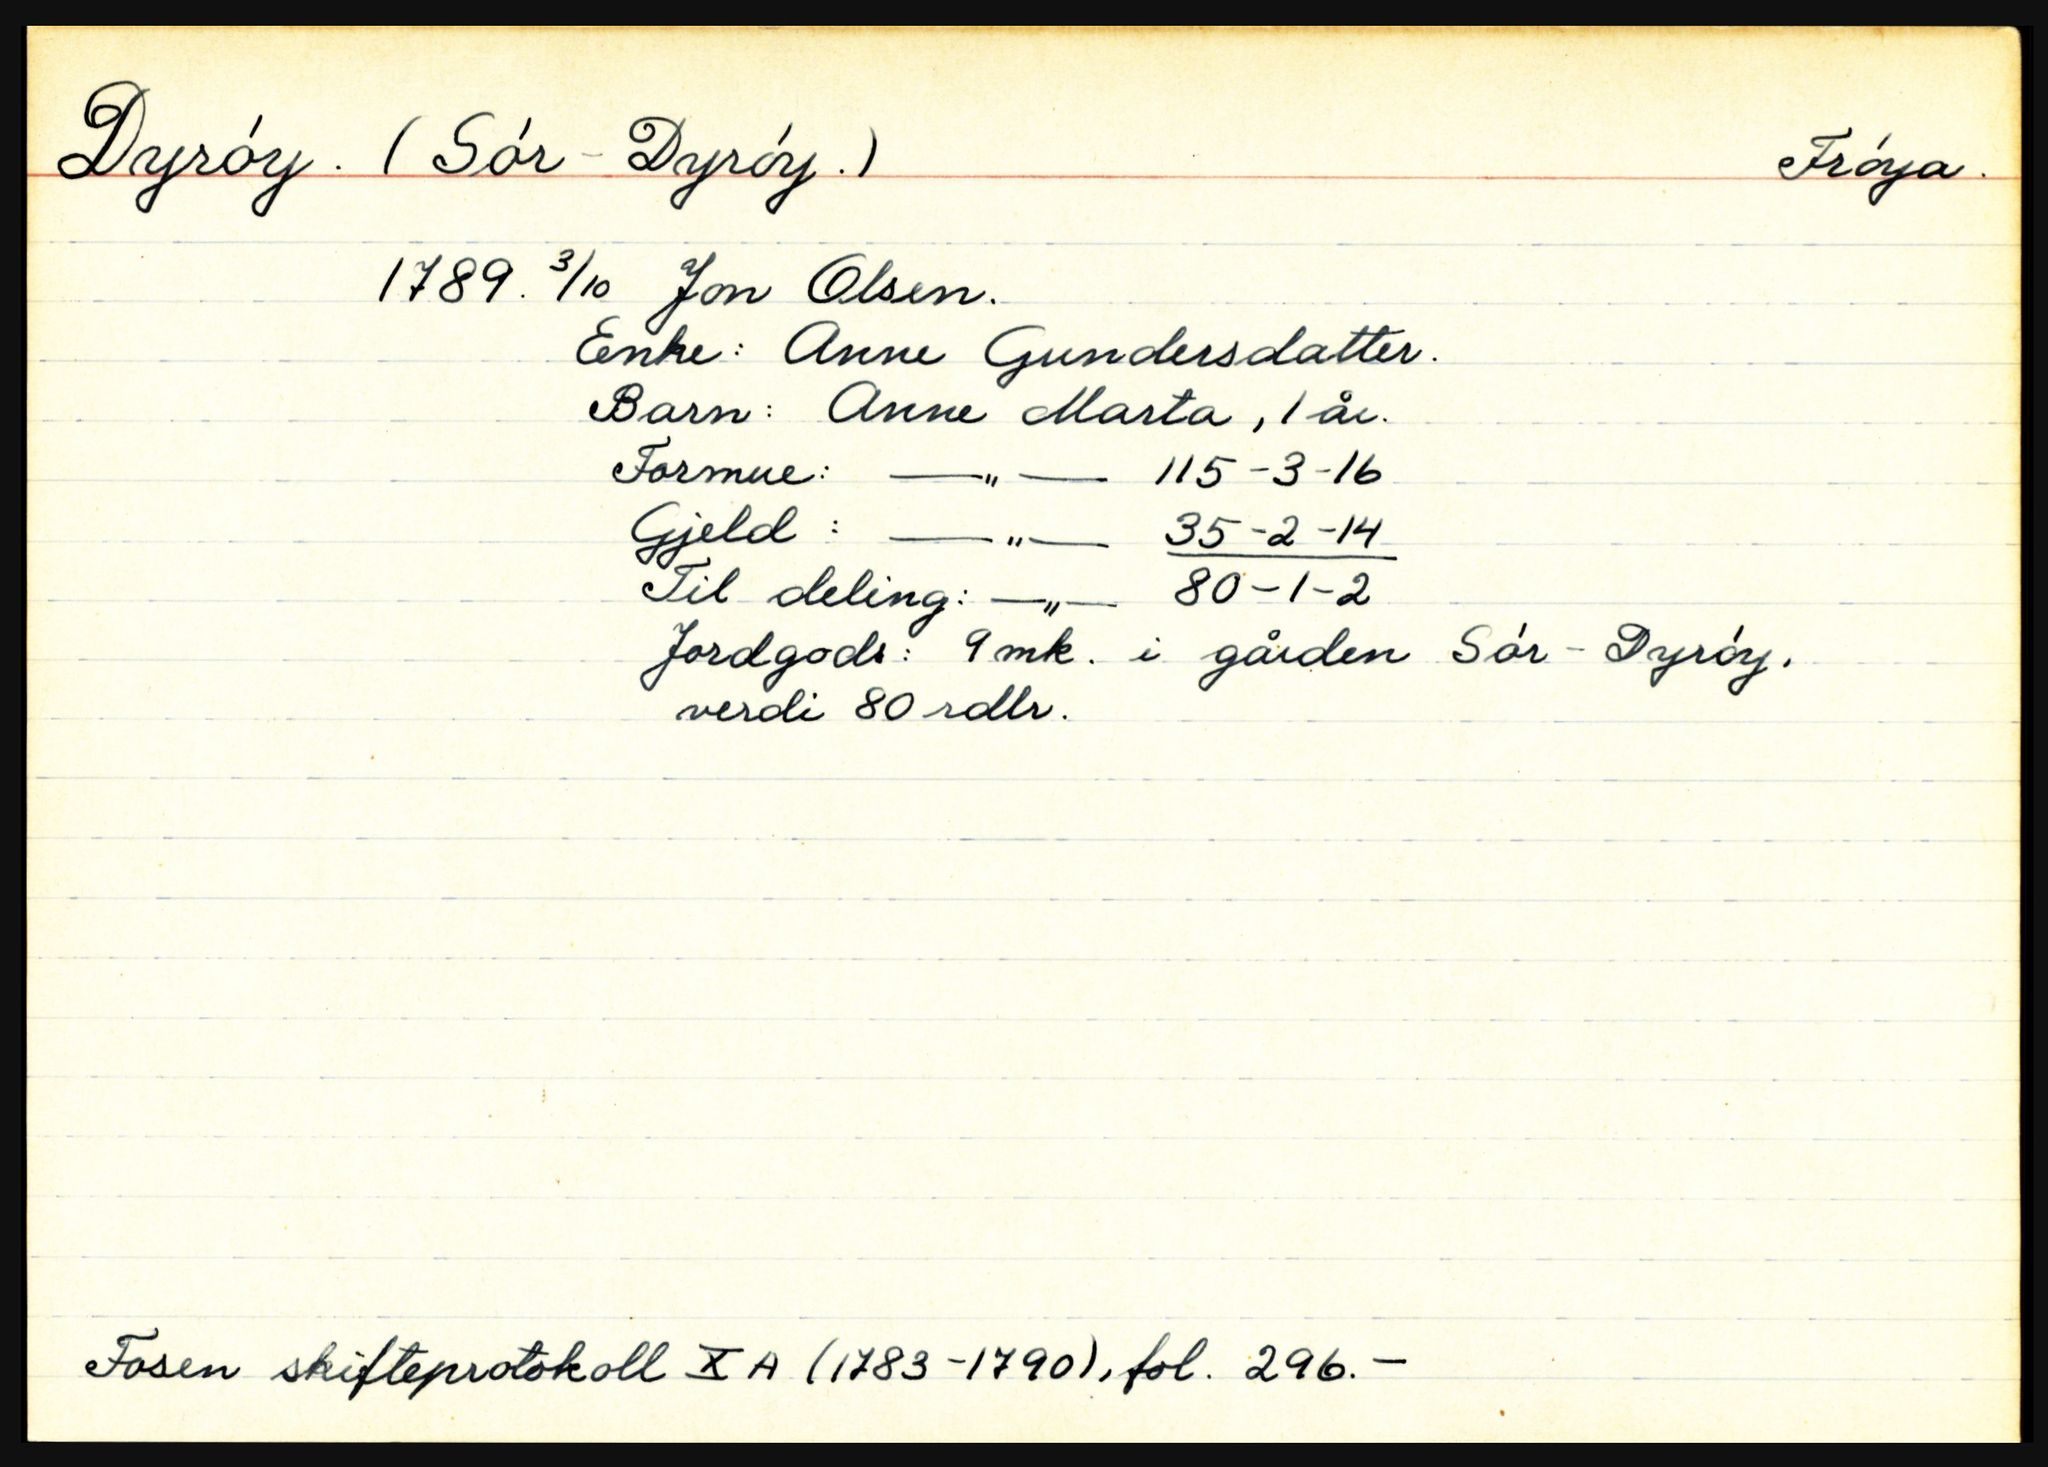 Dyróy. (Sór-Dyróy.) Fróya.
1789. 3/10 Jon Olsen.
Enke: Anne Gundersdatter.
Barn: Anne Marta, 1 år.
Formue: —„— 115-3-16
Gjeld: —„— 35-2-14
Til deling: —„— 80-1-2
Jordgods: 9 mk. i gården Sór-Dyróy.
verdi 80 rdlr.
Fosen skifteprotokoll X A (1783-1790), fol. 296.—